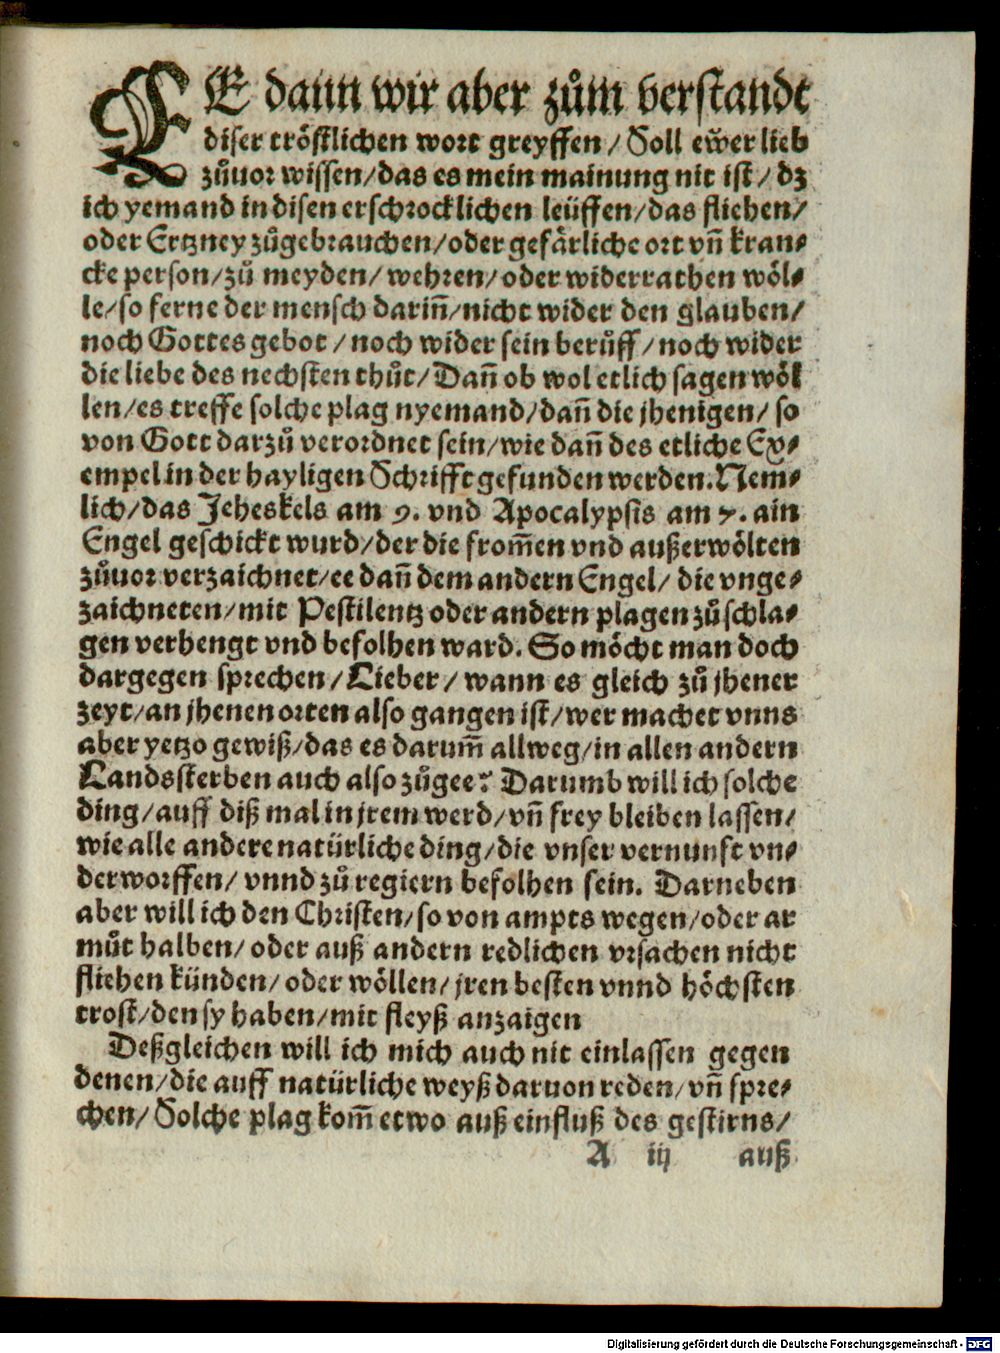 EE dann wir aber zům verstandt
diser tröstlichen wort greyffen / Soll eẅer lieb
zůuor wissen / das es mein mainung nit ist / dz
ich yemand in disen erschrocklichen leüffen / das fliehen /
oder Ertzney zůgebrauchen / oder gefärliche ort vñ kran⸗
cke person / zů meyden / wehren / oder widerrathen wöl⸗
le / so ferne der mensch dariñ / nicht wider den glauben /
noch Gottes gebot / noch wider sein berůff / noch wider
die liebe des nechsten thůt / Dañ ob wol etlich sagen wöl
len / es treffe solche plag nyemand / dañ die jhenigen / so
von Gott darzů verordnet sein / wie dañ des etliche Ex⸗
empel in der hayligen Schrifft gefunden werden. Nem⸗
lich / das Jeheskels am 9. vnd Apocalypsis am 7. ain
Engel geschickt wurd / der die from̃en vnd außerwölten
zůuor verzaichnet / ee dañ dem andern Engel / die vnge⸗
zaichneten / mit Pestilentz oder andern plagen zůschla⸗
gen verhengt vnd befolhen ward. So möcht man doch
dargegen sprechen / Lieber / wann es gleich zů jhener
zeyt / an jhenen orten also gangen ist / wer machet vnns
aber yetzo gewiß / das es darum̃ allweg / in allen andern
Landssterben auch also zůgee? Darumb will ich solche
ding / auff diß mal in jrem werd / vñ frey bleiben lassen /
wie alle andere natürliche ding / die vnser vernunft vn⸗
derworffen / vnnd zů regiern befolhen sein. Darneben
aber will ich den Christen / so von ampts wegen / oder ar
můt halben / oder auß andern redlichen vrsachen nicht
fliehen künden / oder wöllen / jren besten vnnd höchsten
trost / den sy haben / mit fleyß anzaigen
Deßgleichen will ich mich auch nit einlassen gegen
denen / die auff natürliche weyß daruon reden / vñ spre⸗
chen / Solche plag kom̃ etwo auß einfluß des gestirns /
A iij auß
Digitalisierung gefördert durch die Deutsche Forschungsgemeinschaft - DFG